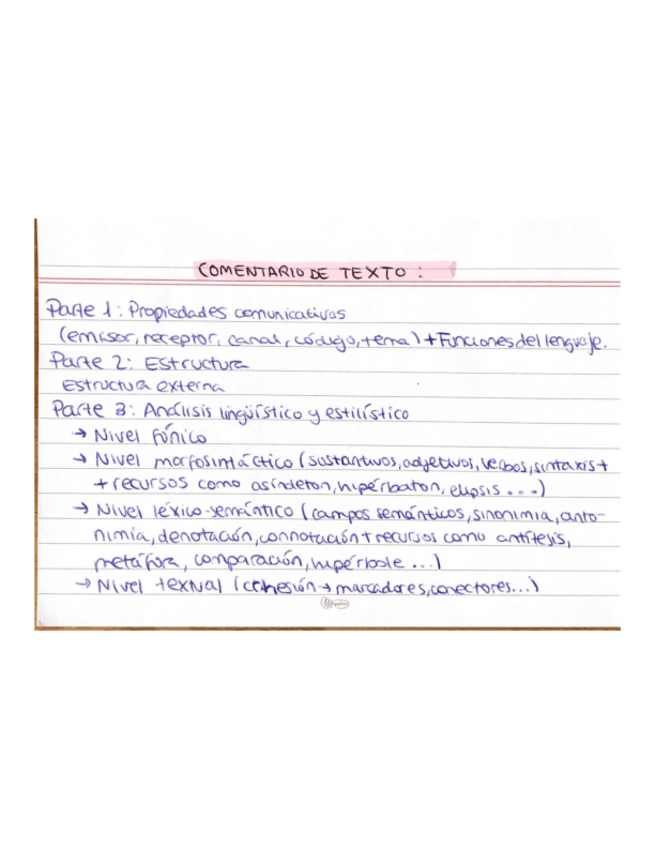 COMENTARIO DE TEXTO :
Parte 1: Propiedades comunicativas
(emisor, receptor, canal, código, tema) + Funciones del lenguaje.
Parte 2: Estructura
Estructura externa
Parte 3: Análisis lingüístico y estilístico
→ Nivel fónico
→ Nivel morfosintáctico (sustantivos, adjetivos, verbos, sintaxis +
+ recursos como asíndeton, hipérbaton, elipsis ...)
→ Nivel léxico-semántico (campos semánticos, sinonimia, anto-
nimia, denotación, connotación + recursos como antítesis,
metáfora, comparación, hipérbole ...)
→ Nivel textual (cohesión → marcadores, conectores...)